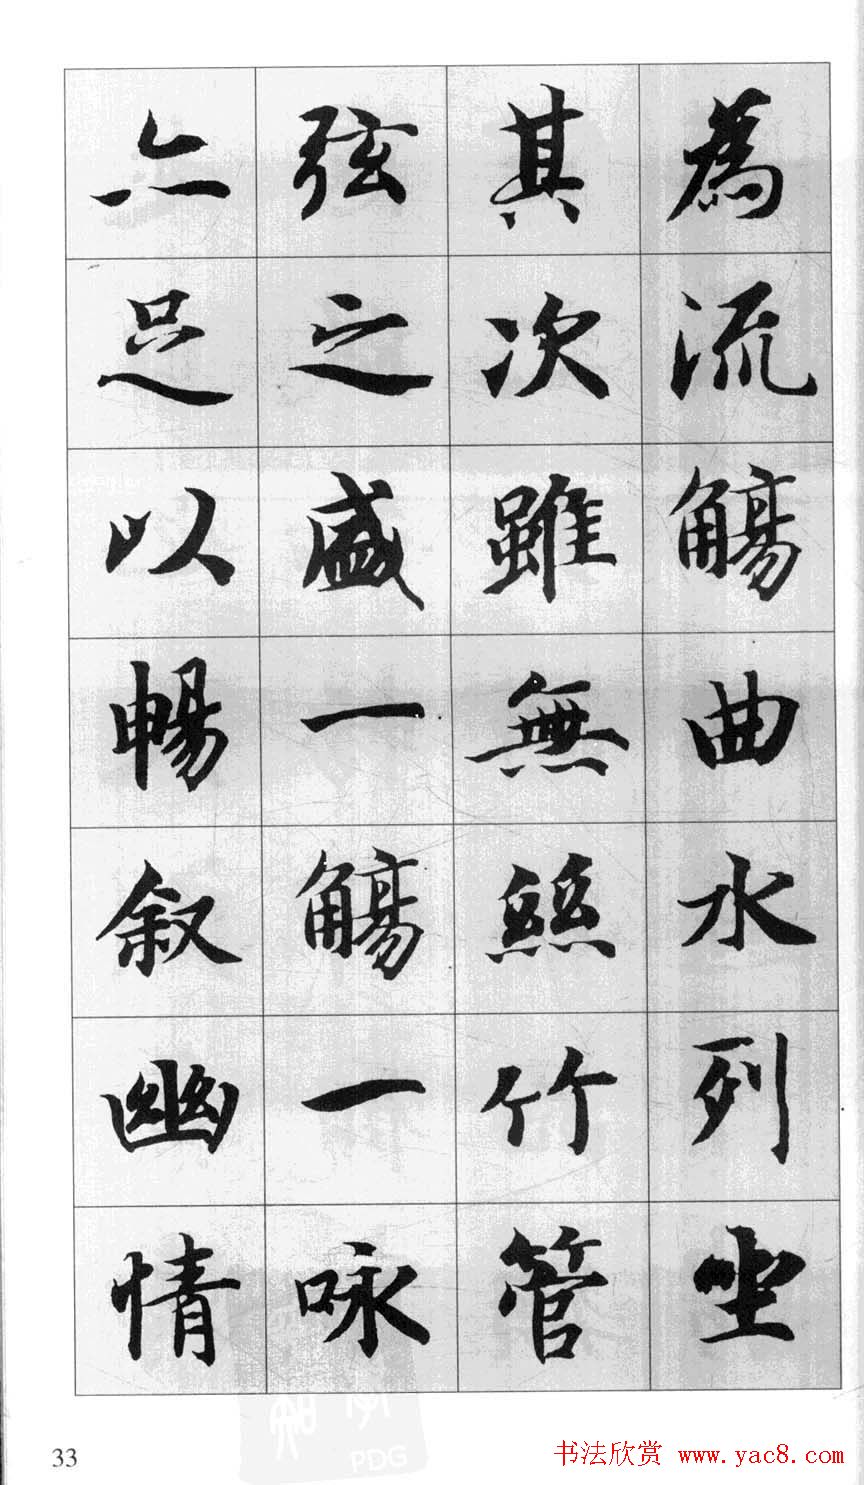 為流觴曲水列坐
其次雖無絲竹管
弦之盛一觴一咏
亦足以暢叙幽情
33
PDG
书法欣赏 www.yac8.com